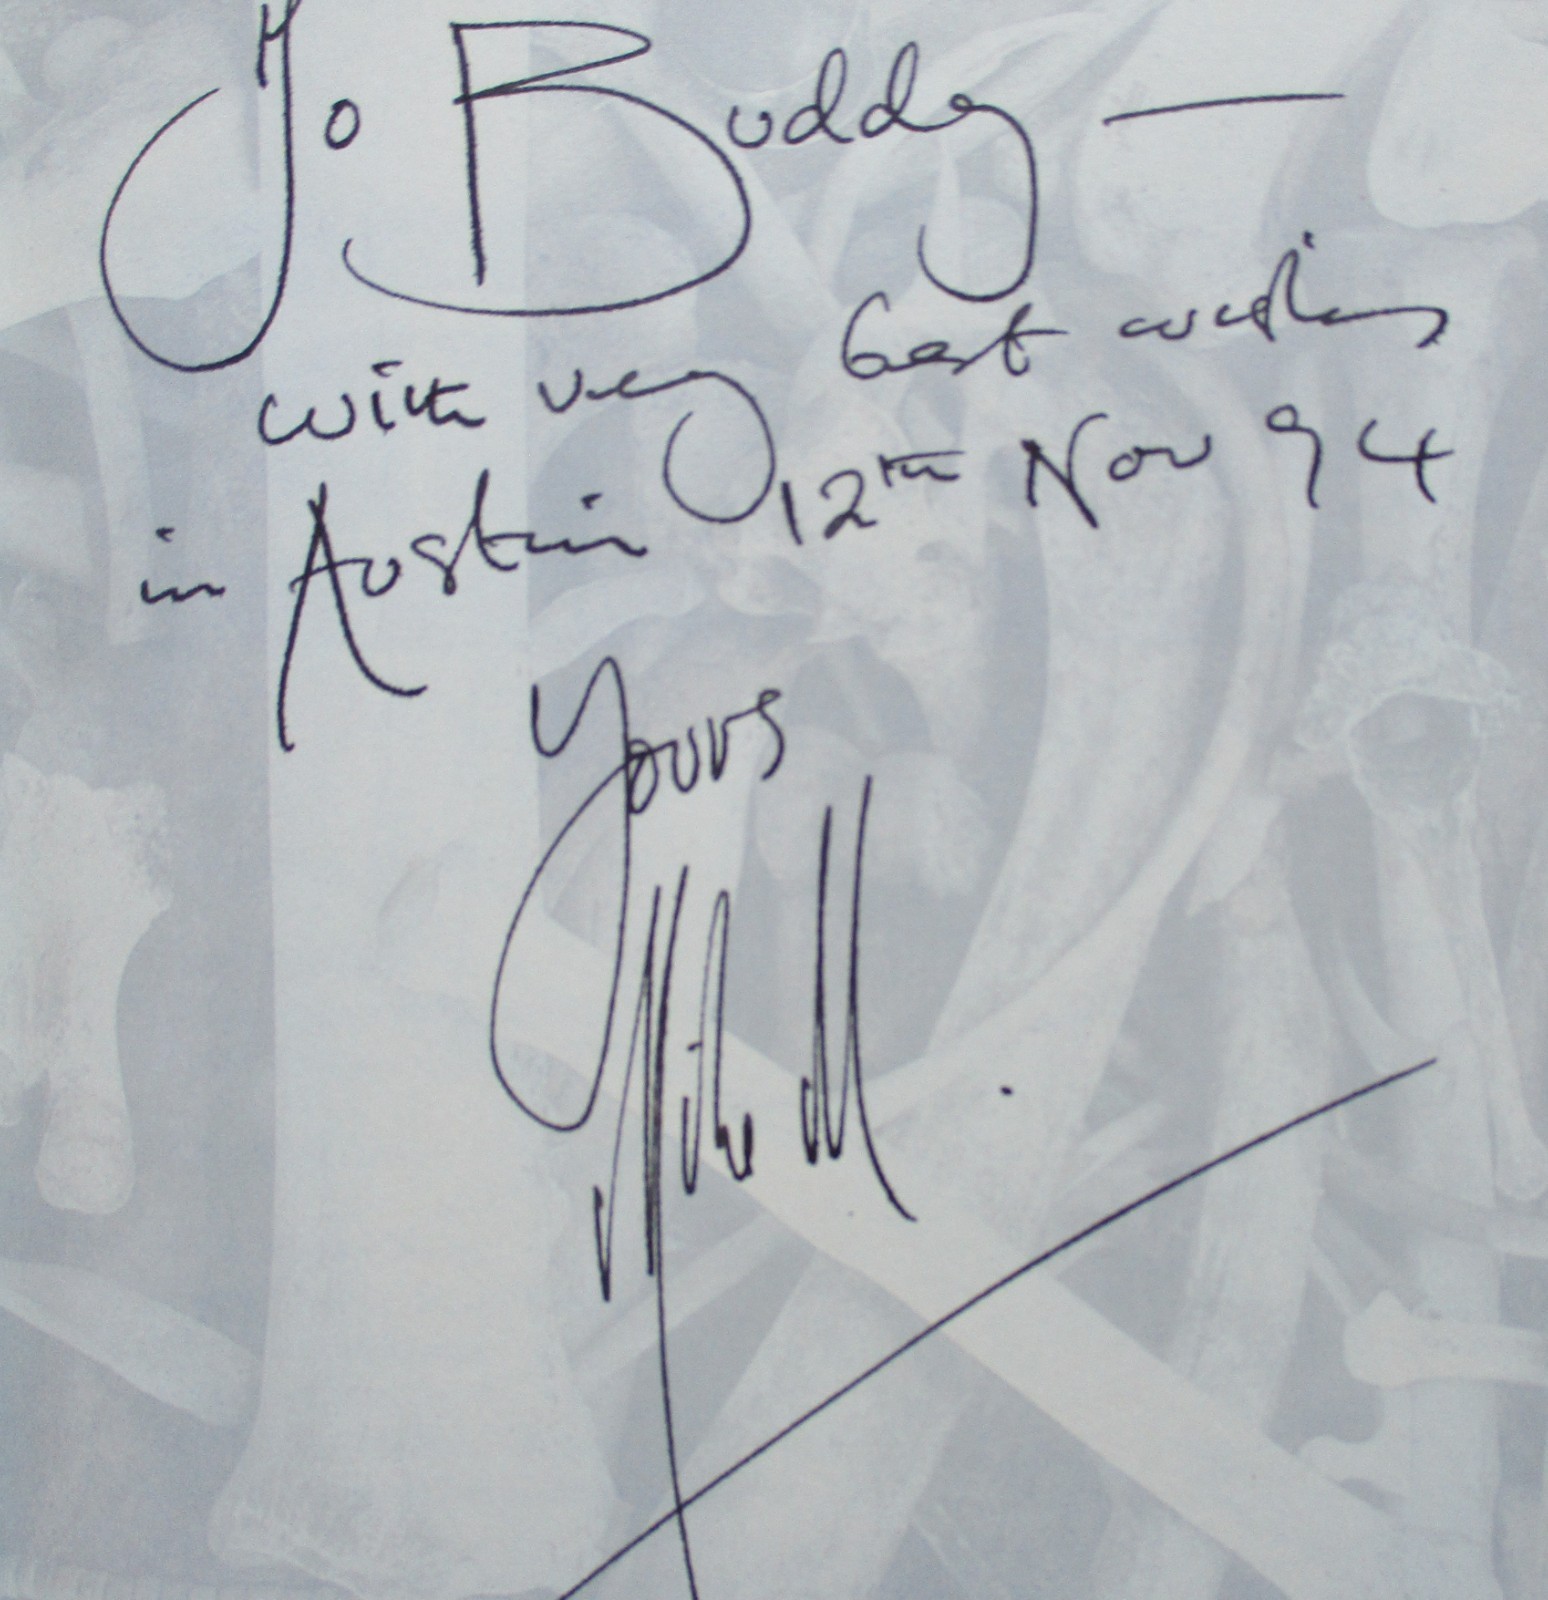 To Buddy —
with very best wishes
in Austin 12th Nov 94
Yours